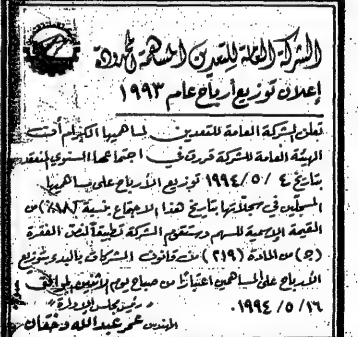 الشركة العامة للتعدين المساهمة المحدودة
إعلان توزيع أرباح عام ١٩٩٣
تعلن الشركة العامة للتعدين لمساهميها الكرام أن
الهيئة العامة للشركة قررت في اجتماعها السنوي المنعقد
بتاريخ ٤ / ٥ / ١٩٩٤ توزيع الأرباح على مساهميها
المسجلين في سجلاتها بتاريخ هذا الاجتماع بنسبة (١٨٪) من
القيمة الاسمية للسهم وستقوم الشركة تطبيقاً لنص الفقرة
(ج) من المادة (٢١٩) من قانون الشركات بالبدء بتوزيع
الأرباح على المساهمين اعتباراً من صباح يوم الاثنين الموافق
١٦ / ٥ / ١٩٩٤.
رئيس مجلس الإدارة
المهندس عمر عبدالله دخقان